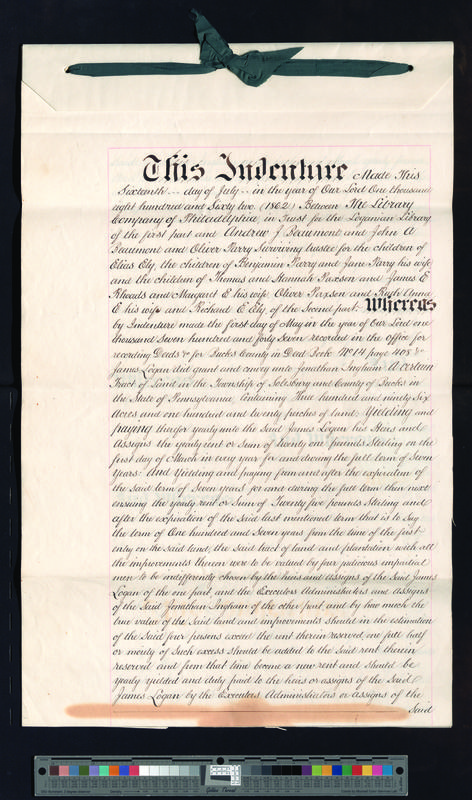 This Indenture Made This
Sixteenth day of July in the year of Our Lord One thousand
eight hundred and Sixty two (1862) Between The Library
Company of Philadelphia, in Trust for the Loganian Library
of the first part and Andrew J Beaumont and John A
Beaumont and Oliver Parry Surviving trustee for the children of
Elias Ely, the children of Benjamin Parry and Jane Parry his wife
and the children of Thomas and Hannah Paxson and James E
Rhoads and Margaret E his wife, Oliver Paxson and Ruth Anna
E his wife and Richard E Ely of the Second part: Whereas
by Indenture made the first day of May in the year of Our Lord one
thousand Seven hundred and forty Seven recorded in the office for
recording Deeds &c for Bucks County in Deed Book No 14 page 408 &c
James Logan did grant and convey unto Jonathan Ingham A certain
Tract of Land in the Township of Solesbury and County of Bucks in
the State of Pennsylvania, Containing Three hundred and ninety Six
Acres and one hundred and twenty perches of land; Yielding and
paying therefor yearly unto the Said James Logan his Heirs and
Assigns the yearly rent or Sum of twenty one pounds Sterling on the
first day of March in every year for and during the full term of Seven
Years: And Yielding and paying from and after the expiration of
the Said term of Seven years for and during the full term then next
ensuing the yearly rent or Sum of Twenty five pounds Sterling and
after the expiration of the Said last mentioned term that is to Say
the term of One hundred and Seven years from the time of the first
entry on the Said land, the Said tract of land and plantation with all
the improvements thereon were to be valued by four judicious impartial
men to be indifferently chosen by the heirs and assigns of the Said James
Logan of the one part, and the Executors Administrators and Assigns
of the Said Jonathan Ingham of the other part, and by how much the
true value of the Said land and improvements should in the estimation
of the Said four persons exceed the rent therein reserved, one full half
or moiety of Such excess Should be added to the Said rent therein
reserved and from that time become a new rent and Should be
yearly yielded and duly paid to the heirs or assigns of the Said
James Logan by the Executors Administrators or Assigns of the
Said